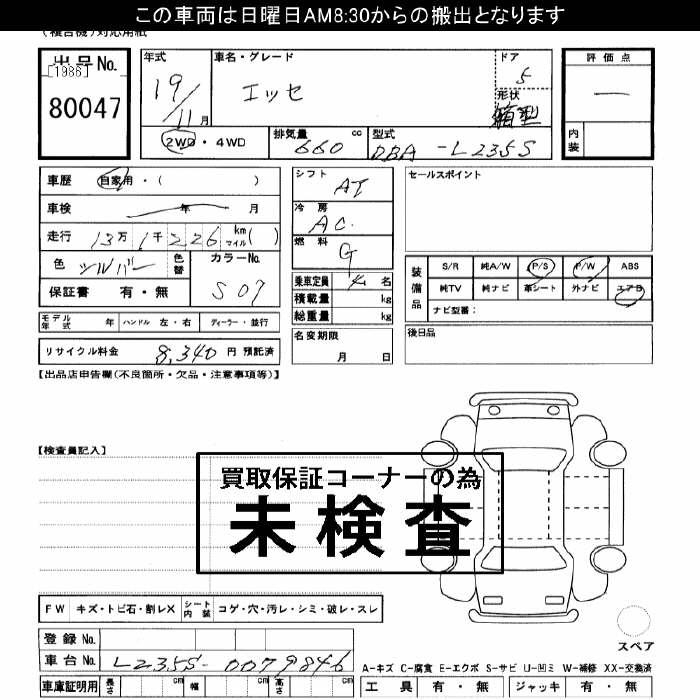 この車両は日曜日AM8:30からの搬出となります
(複合機)対応用紙
出品No.
[1986]
80047
年式
19/11月
車名・グレード
エッセ
ドア
5
形状
箱型
2WD・4WD
排気量
660 cc
型式
DBA-L235S
評価点
内装
車歴 自家用・( )
車検 年 月
走行 13万1千226 km マイル( )
色 シルバー 色替
カラーNo.
S07
保証書 有・無
モデル年式 年 ハンドル 左・右 ディーラー・並行
リサイクル料金 8,340 円 預託済
シフト
AT
冷房
AC.
燃料
G
乗車定員 4 名
積載量 kg
総重量 kg
名変期限
月 日
セールスポイント
装備品
S/R 純A/W P/S P/W ABS
純TV 純ナビ 革シート 外ナビ エアB
ナビ型番:
後日品
【出品店申告欄(不良箇所・欠品・注意事項等)】
【検査員記入】
買取保証コーナーの為
未検査
FW キズ・トビ石・割レX シート内装 コゲ・穴・汚レ・シミ・破レ・スレ
スペア
登録No.
車台No. L235S-0079846
A-キズ C-腐食 E-エクボ S-サビ U-凹ミ W-補修 XX-交換済
車庫証明用 長さ cm 幅 cm 高さ cm
工具 有・無 ジャッキ 有・無